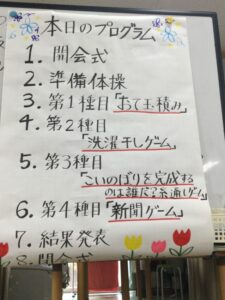 本日のプログラム
1. 開会式
2. 準備体操
3. 第1種目「おて玉積み」
4. 第2種目
「洗濯干しゲーム」
5. 第3種目
「こいのぼりを完成する
のは誰だ?糸通しゲーム」
6. 第4種目「新聞ゲーム」
7. 結果発表
8. 閉会式